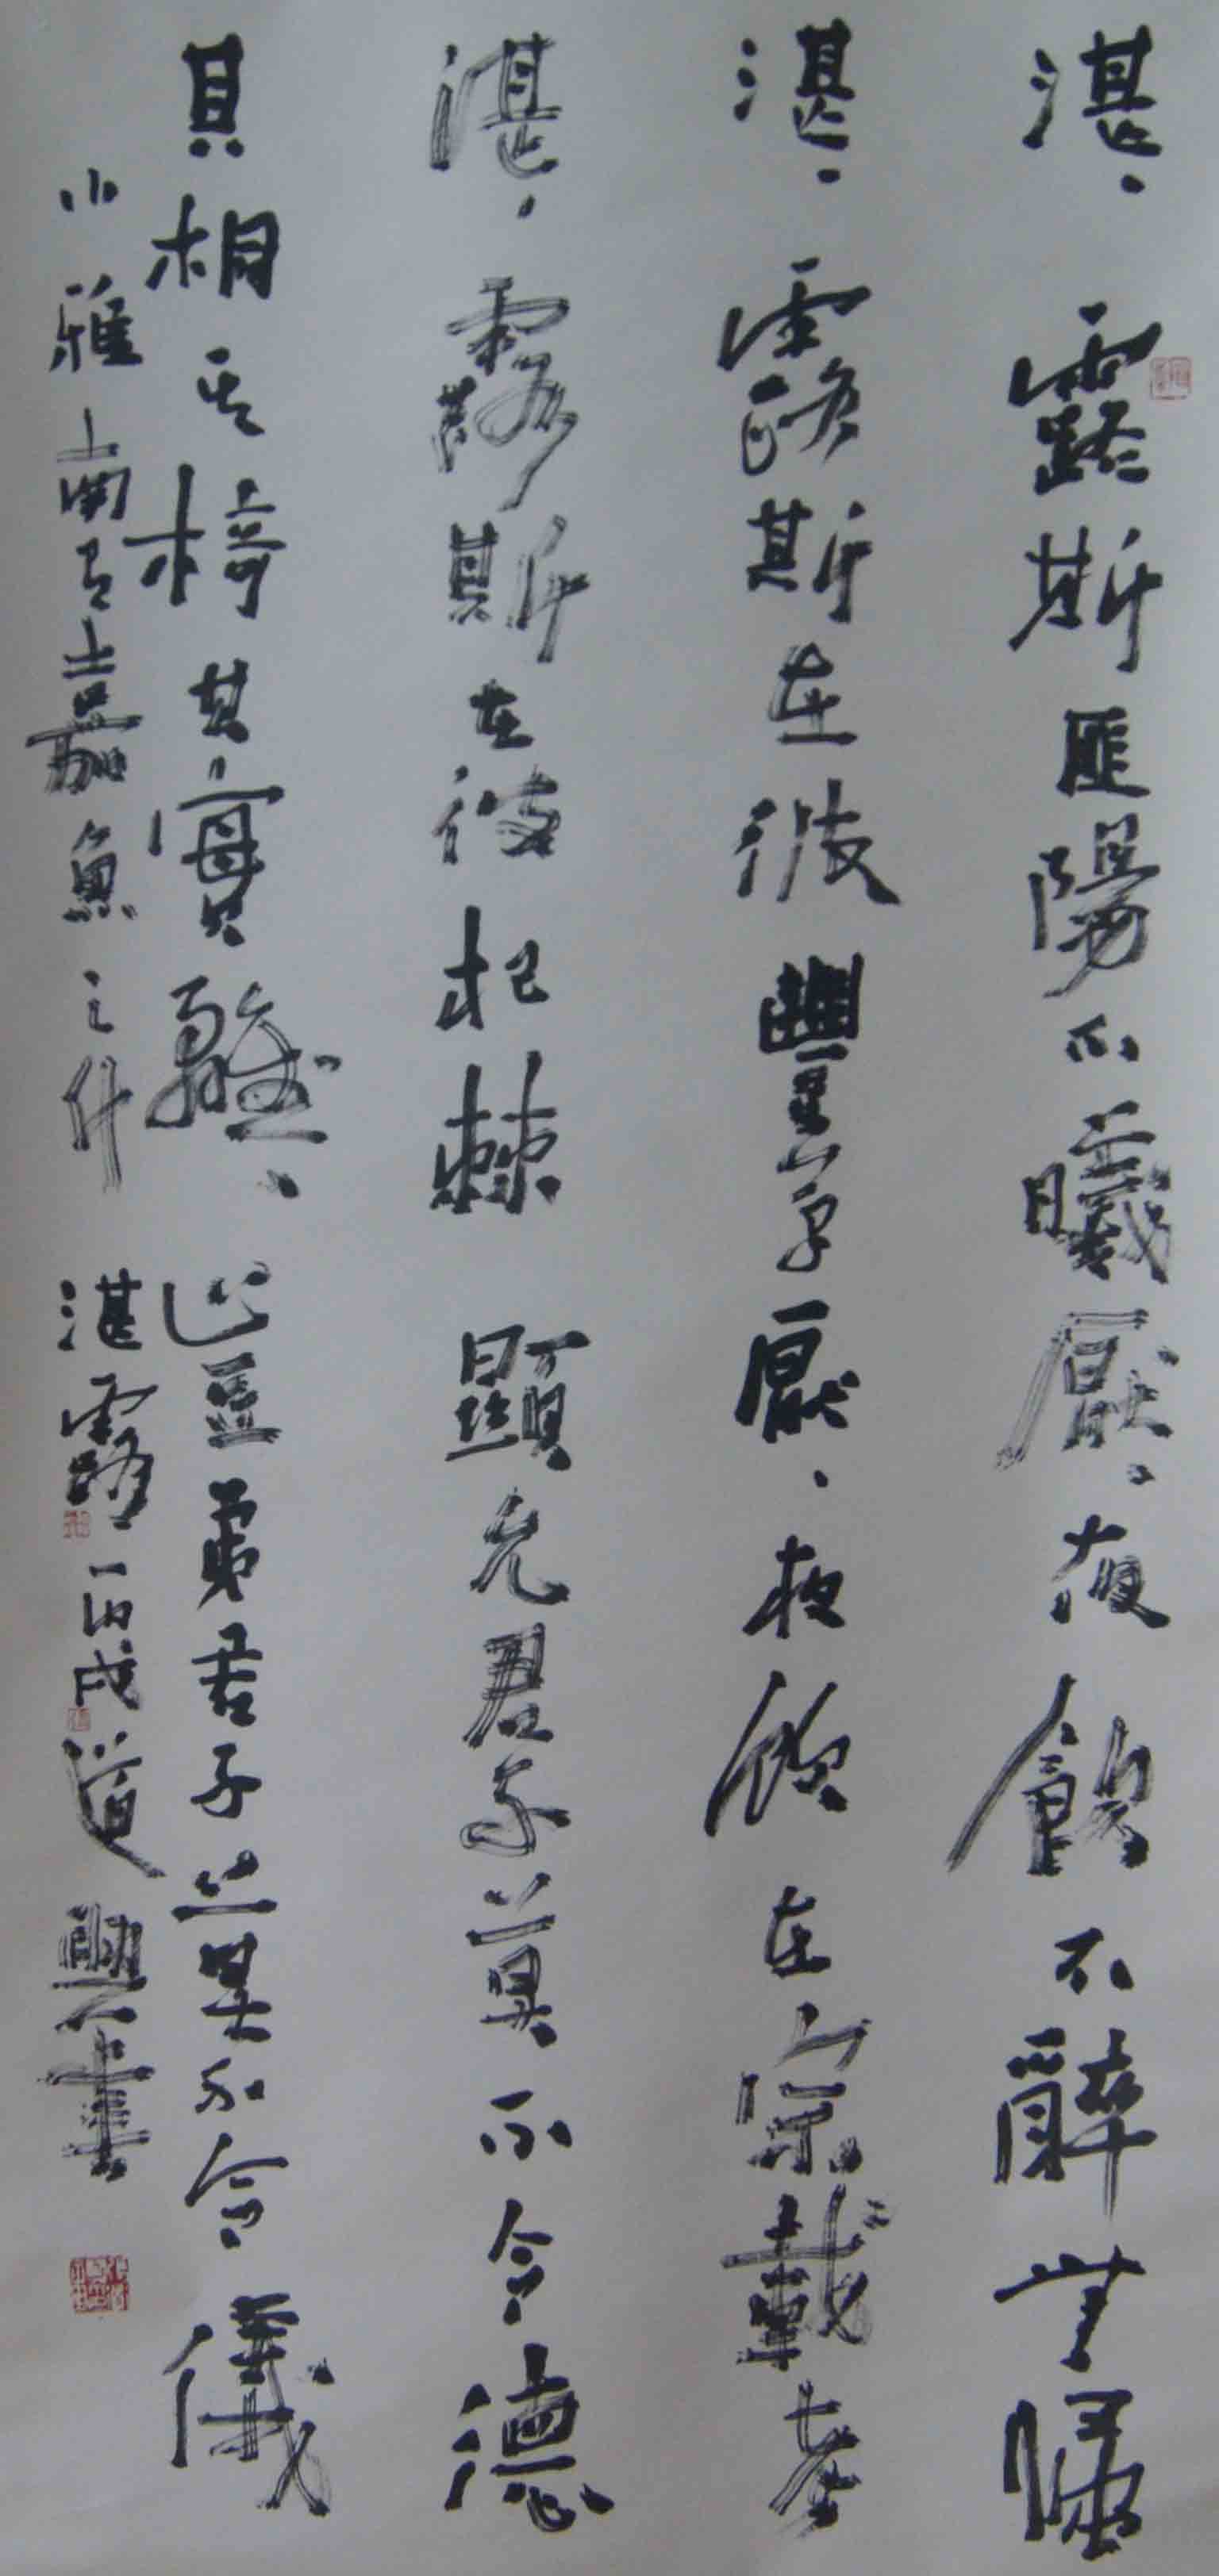 湛、露斯匪陽不曦厭、夜飲不醉無歸
湛、露斯在彼豐草厭、夜飲在宗載考
湛、露斯在彼杞棘顯允君子莫不令德
其桐其椅其實離、豈弟君子莫不令儀
小雅南有嘉魚之什 湛露 丙戌道興書